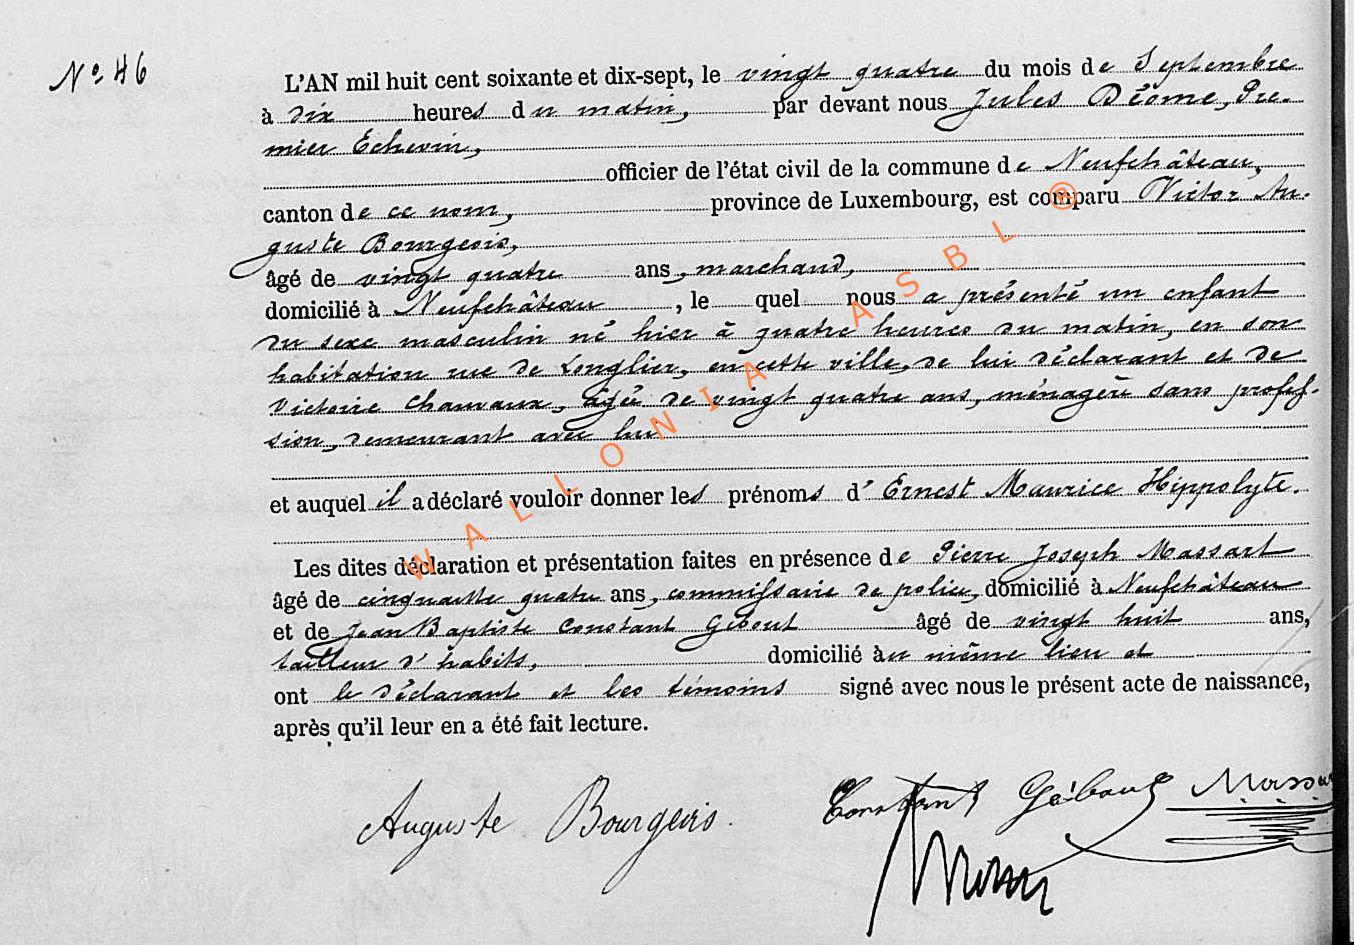 N° 46
L'AN mil huit cent soixante et dix-sept, le vingt quatre du mois de Septembre
à dix heures du matin, par devant nous Jules Déome, Pre-
mier Echevin,
officier de l'état civil de la commune de Neufchâteau,
canton de ce nom, province de Luxembourg, est comparu Victor Au-
guste Bourgeois,
âgé de vingt quatre ans, marchand,
domicilié à Neufchâteau, le quel nous a présenté un enfant
du sexe masculin né hier à quatre heures du matin, en son
habitation rue de Longlier, en cette ville, de lui déclarant et de
Victoire Chauvaux, agée de vingt quatre ans, ménagère sans profes-
sion, demeurant avec lui
et auquel il a déclaré vouloir donner les prénoms d' Ernest Maurice Hippolyte.
Les dites déclaration et présentation faites en présence de Pierre Joseph Massart
âgé de cinquante quatre ans, commissaire de police, domicilié à Neufchâteau
et de Jean Baptiste Constant Gébout âgé de vingt huit ans,
tailleur d'habits, domicilié au même lieu et
ont le déclarant et les témoins signé avec nous le présent acte de naissance,
après qu'il leur en a été fait lecture.
Auguste Bourgeois. Constant Gébout Massar
WALLONIA ASBL ©